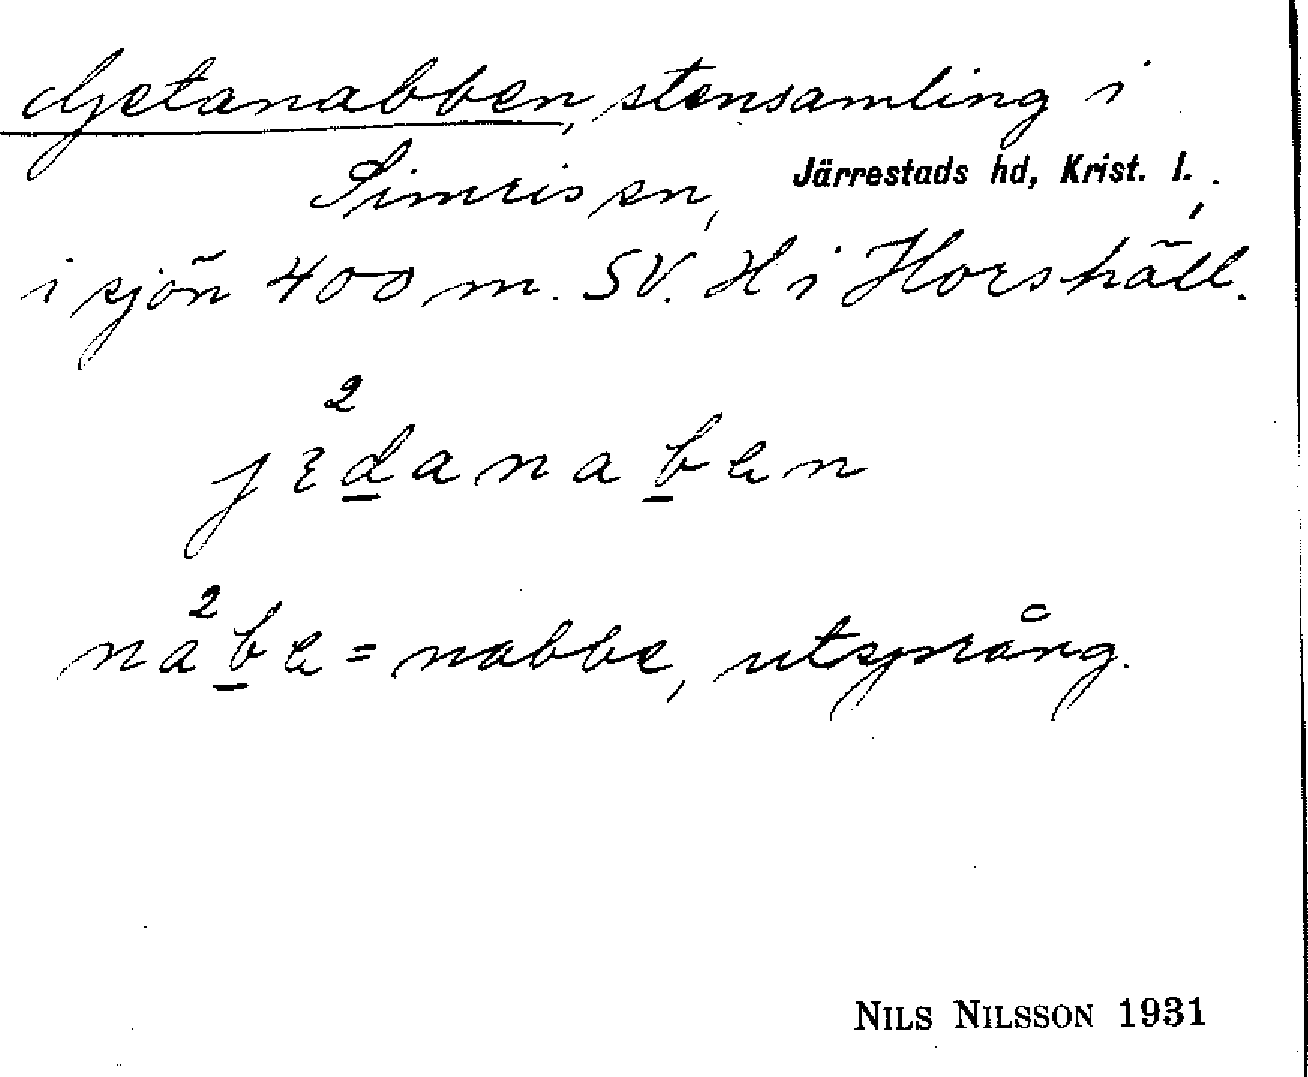 Getanabben, stensamling i
Simris sn, Järrestads hd, Krist. l.,
i sjön 400 m. SV. H i Horshäll.
2
jɛdanaben
2
nabe = nabbe, utsprång.
NILS NILSSON 1931